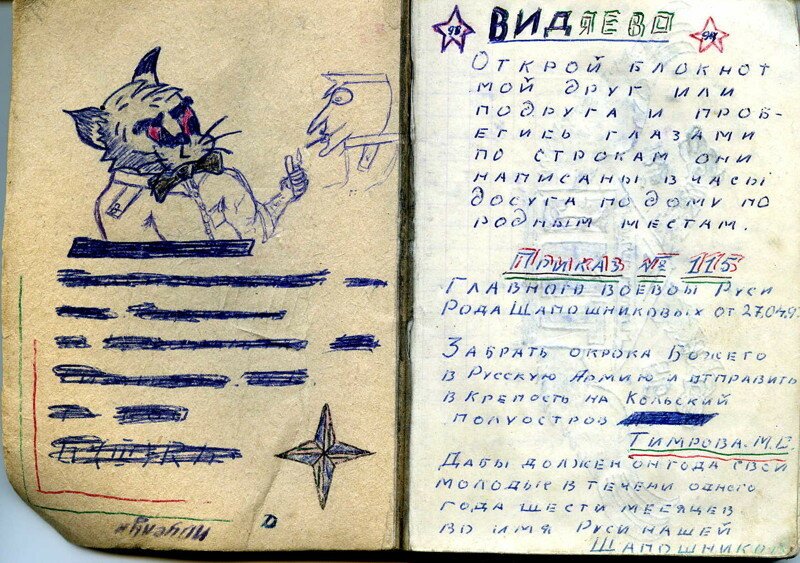 98 ВИДЯЕВО 99
ОТКРОЙ БЛОКНОТ
МОЙ ДРУГ ИЛИ
ПОДРУГА И ПРОБ-
ЕГИСЬ ГЛАЗАМИ
ПО СТРОКАМ ОНИ
НАПИСАНЫ В ЧАСЫ
ДОСУГА ПО ДОМУ ПО
РОДНЫМ МЕСТАМ.
ПРИКАЗ № 115
ГЛАВНОГО ВОЕВОЫ РУСИ
РОДА ШАПОШНИКОВЫХ ОТ
ЗАБРАТЬ ОКРОКА БОЖЕГО
В РУССКУЮ АРМИЮ И ОТПРАВИТЬ
В КРЕПОСТЬ НА КОЛЬСКИЙ
ПОЛУОСТРОВ
ТИМРОВА. М.С.
ДАБЫ ДОЛЖЕН ОН ГОДА СВОИ
МОЛОДЫЕ В ТЕЧЕНИ ОДНОГО
ГОДА ШЕСТИ МЕСЯЦЕВ
ВО ИМЯ РУСИ НАШЕЙ
ШАПОШНИКОВ